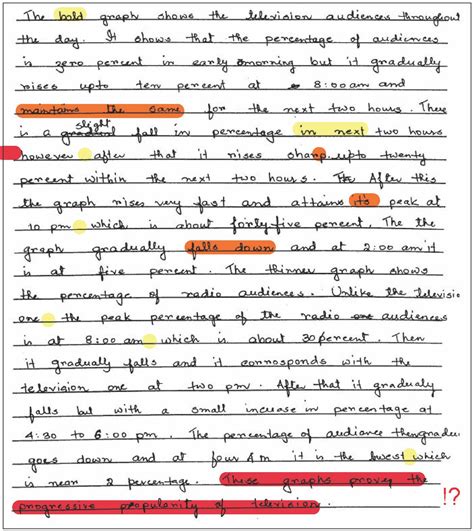 The bold graph shows the television audiences throughout
the day. It shows that the percentage of audiences
is zero percent in early morning but it gradually
rises upto ten percent at 8:00 am and
maintains the same for the next two hours. There
is a slight fall in percentage in next two hours
however after that it rises sharp upto twenty
percent within the next two hours. The After this
the graph rises very fast and attains it's peak at
10 pm which is about forty-five percent. The the
graph gradually falls down and at 2:00 am it
is at five percent. The thinner graph shows
the percentage of radio audiences. Unlike the televisio
one the peak percentage of the radio one audiences
is at 8:00 am which is about 30 percent. Then
it gradually falls and it corrosponds with the
television one at two pm. After that it gradualy
falls but with a small increase in percentage at
4:30 to 6:00 pm. The percentage of audience then gradu
goes down and at four am it is the lowest which
is near 2 percentage. These graphs proves the
progressive popularity of television. !?